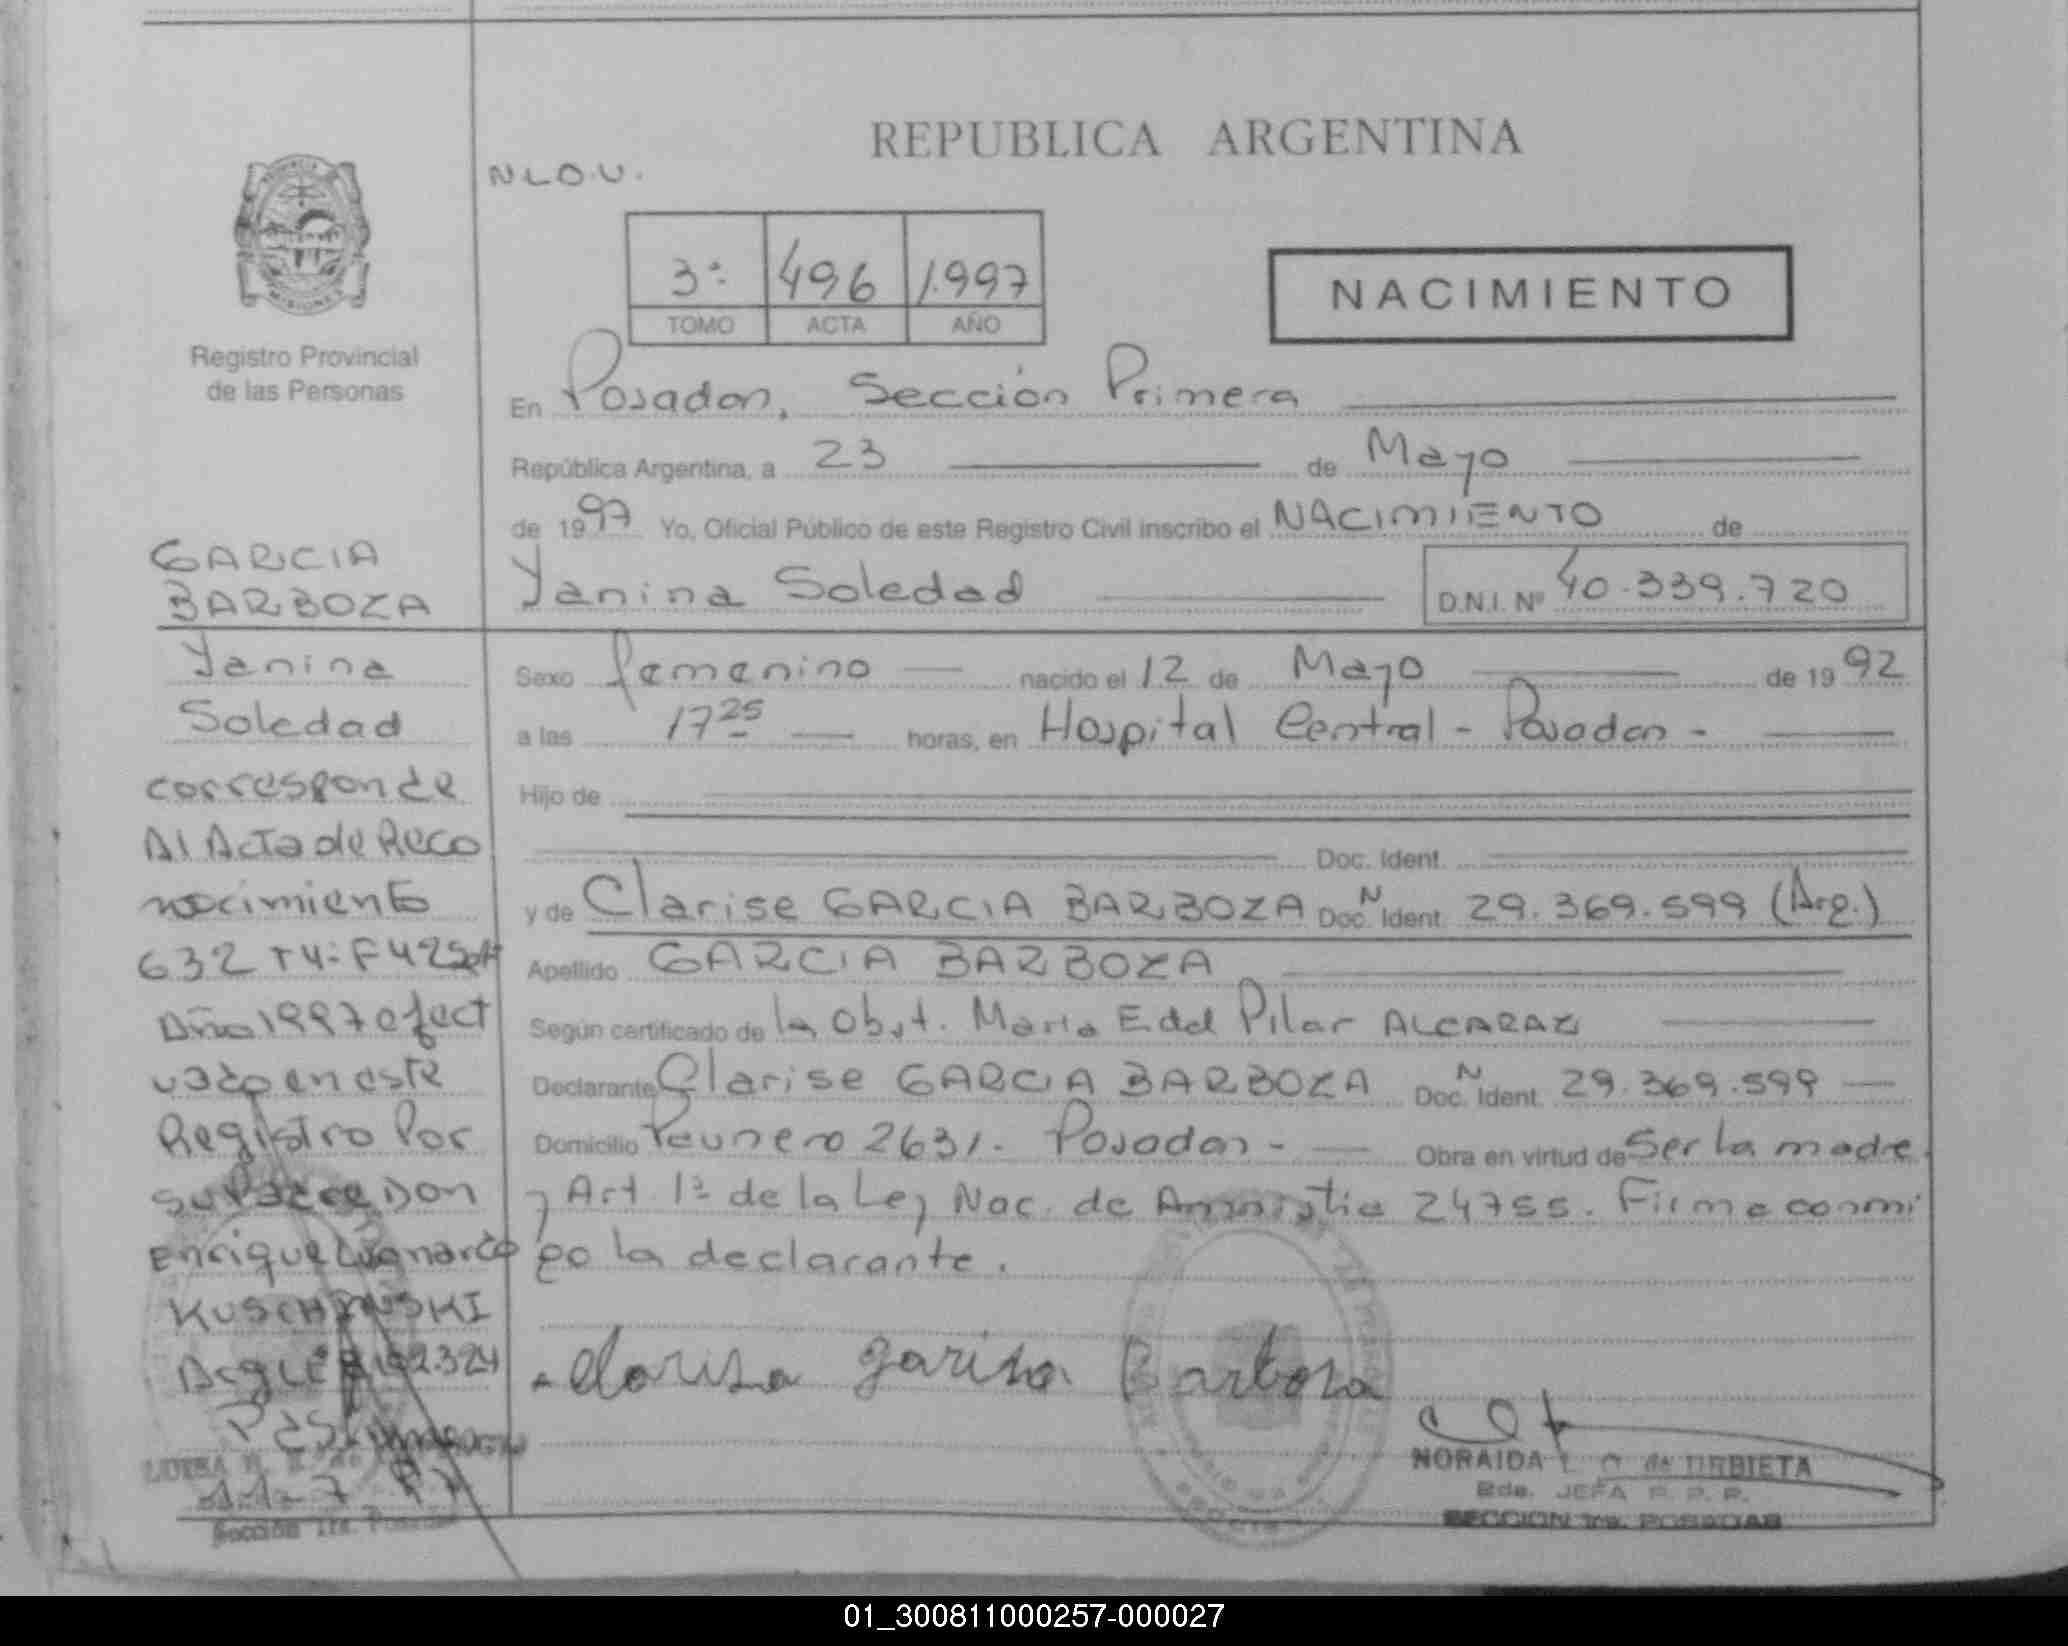 REPUBLICA ARGENTINA
N L O.U.
3ª 496 1.997
TOMO ACTA AÑO
NACIMIENTO
PROVINCIA
MISIONES
Registro Provincial
de las Personas
En Posadas, Sección Primera
República Argentina, a 23 de Mayo
de 1997 Yo, Oficial Público de este Registro Civil inscribo el NACIMIENTO de
Yanina Soledad D.N.I. Nº 40.339.720
Sexo femenino nacido el 12 de Mayo de 1992
a las 17 25 horas, en Hospital Central - Posadas -
Hijo de
Doc. Ident.
y de Clarise GARCIA BARBOZA N Doc. Ident. 29.369.599 (Arg.)
Apellido GARCIA BARBOZA
Según certificado de la Obst. Maria E. del Pilar ALCARAZ
Declarante Clarise GARCIA BARBOZA N Doc. Ident. 29.369.599
Domicilio Peunero 2631. Posadas - Obra en virtud de Ser la madre
y Art. 1º de la Ley Nac. de Amnistia 24755. Firma conmi
go la declarante.
Garcia Barboza
NORAIDA de URBIETA
JEFA R. P. P.
SECCION 1ra. POSADAS
GARCIA
BARBOZA
Yanina
Soledad
corresponde
Al Acta de Reco
nocimiento
632 T4: F425
Año 1997 efect
uado en este
Registro Por
su Padre Don
Enrique
KUSCHINSKI
Sección 1ra. Posadas
01_300811000257-000027